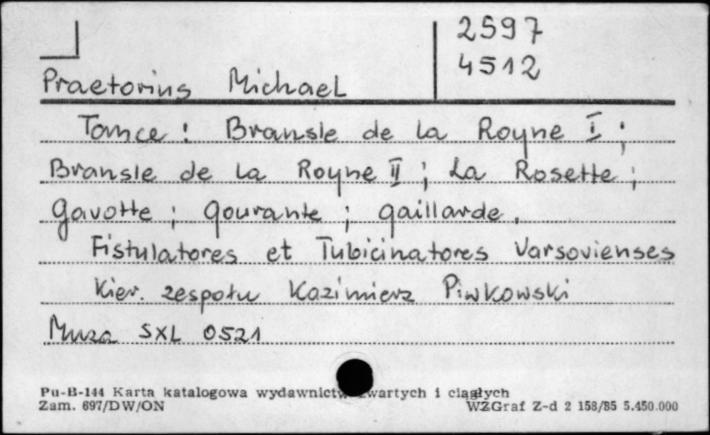 2597
4512
Praetorius Michael
Tańce : Bransle de la Royne I ;
Bransle de la Royne II ; La Rosette ;
Gavotte ; Qourante ; Gaillarde.
Fistulatores et Tubicinatores Varsovienses
Kier. zespołu Kazimierz Piwkowski
Muza SXL 0521
Pu-B-144 Karta katalogowa wydawnictw zwartych i ciągłych
Zam. 697/DW/ON WZGraf Z-d 2 158/85 5.450.000